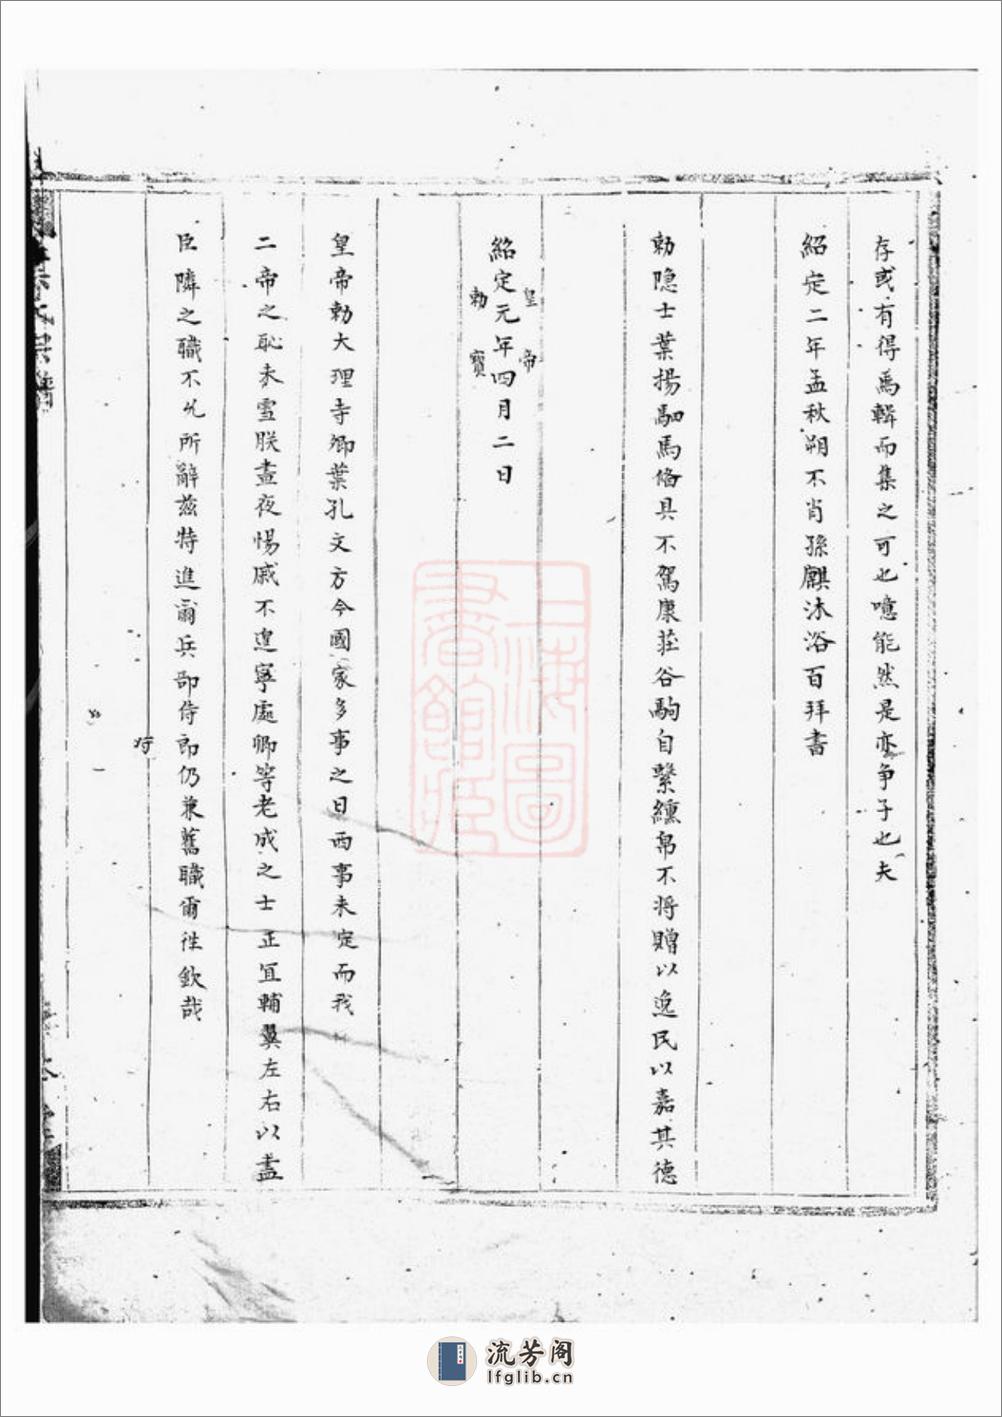 存或有得焉輯而集之可也噫能然是亦爭子也夫
紹定二年孟秋朔不肖孫麒沐浴百拜書
勅隐士葉揚駟馬俻具不駕康莊谷駒自繫纁帛不将贈以逸民以嘉其德
皇帝
紹定元年四月二日
勅寶
皇帝勅大理寺卿葉孔文方今國家多事之日西事未定而我
二帝之恥未雪朕晝夜惕戚不遑寧處卿等老成之士正宜輔翼左右以盡
臣隣之職不允所辭兹特進爾兵部侍郎仍兼舊職爾徃欽哉
上海圖書館藏
氏宗譜
流芳阁
lfglib.cn